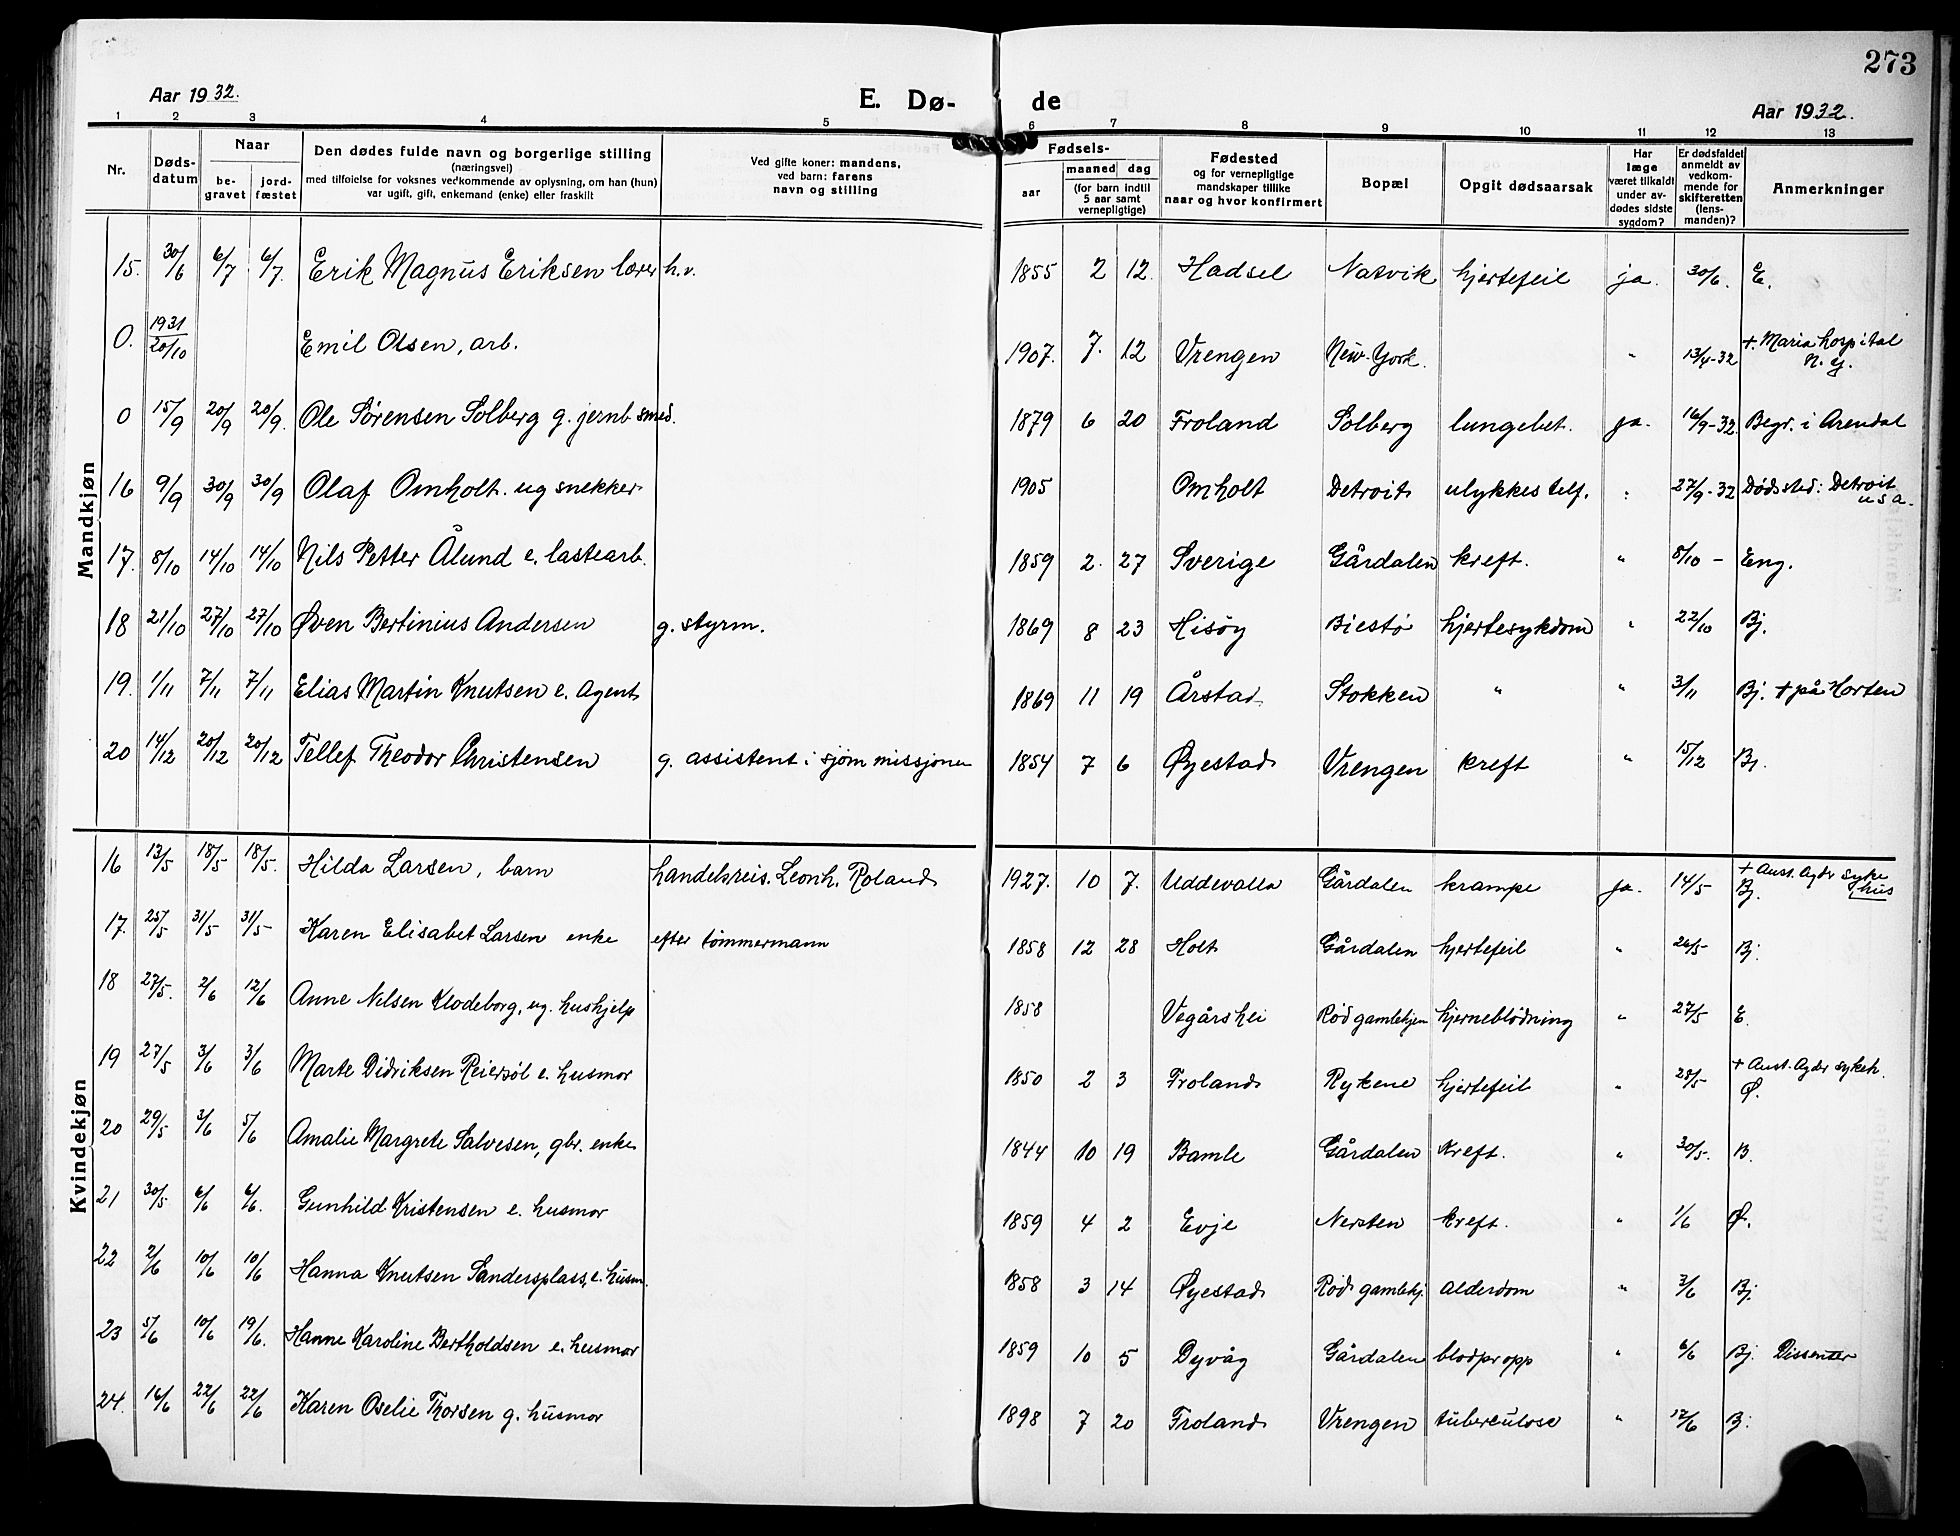 273
Aar 1932.
E. Dø- de
Aar 1932.
1 2 3 4 5 6 7 8 9 10 11 12 13
Nr.
Døds-
datum
Naar
be-
gravet
jord-
fæstet
Den dødes fulde navn og borgerlige stilling
(næringsvei)
med tilføielse for voksnes vedkommende av oplysning, om han (hun)
var ugift, gift, enkemand (enke) eller fraskilt
Ved gifte koner: mandens,
ved barn: farens
navn og stilling
Fødsels-
aar
maaned dag
(for barn indtil
5 aar samt
vernepligtige)
Fødested
og for vernepligtige
mandskaper tillike
naar og hvor konfirmert
Bopæl
Opgit dødsaarsak
Har
læge
været tilkaldt
under av-
dødes sidste
sygdom?
Er dødsfaldet
anmeldt av
vedkom-
mende for
skifteretten
(lens-
manden)?
Anmerkninger
Mandkjøn
15. 30/6 6/7 6/7. Erik Magnus Eriksen lærer h.v. 1855 2 12. Hadsel Natvik hjertefeil ja. 30/6. E.
0. 1931 20/10 Emil Olsen, arb. 1907. 7. 12 Vrengen New-York. " 13/4-32 +. Maria hospital
N.Y.
0 15/9 20/9 20/9. Ole Sørensen Solberg g. jernb smed. 1879 6 20 Froland Solberg lungebet. ja. 16/9-32. Begr. i Arendal
16 9/9 30/9 30/9 Olaf Omholt. ug snekker 1905 Omholt Detroit ulykkestilf. " 27/9-32 Dødssted: Detroit
USA.
17. 8/10 14/10 14/10 Nils Petter Ålund e. lastearb. 1859 2. 27 Sverige Gårdalen kreft. " 8/10 - Eng.
18 21/10 27/10 27/10 Øven Bertinius Andersen g. styrm. 1869 8 23 Hisøy Biestø hjertesykdom " 22/10 Bj.
19. 1/11 7/11 7/11 Elias Martin Knutsen e. Agent 1869 11 19 Årstad Stokken " " 3/11 Bj. + på Horten
20 14/12 20/12 20/12 Tellef Theodor Christensen g. assistent i sjømmissjonen 1854 7 6 Øyestad Vrengen kreft " 15/12 Bj.
Kvindekjøn
16 13/5 18/5 18/5. Hilda Larsen, barn handelsreis. Leonh. Roland 1927. 10 7. Uddevalla Gårdalen krampe ja. 14/5 + Aust. Agder syke
Bj. hus
17. 25/5 31/5 31/5 Karen Elisabet Larsen enke efter tømmermann 1858 12 28 Holt Gårdalen hjertefeil " 26/5 Bj.
18 27/5. 2/6 12/6 Anne Nilsen Klodeborg, ug. hushjelp 1858 Vegårshei Rød gamlehjem hjerneblødning " 27/5 E.
19 27/5 3/6 3/6 Marte Didriksen Reiersøl e. husmor 1850 2 3 Froland Rykene hjertefeil " 28/5 + Aust. Agder sykeh.
Ø.
20 29/5 3/6 5/6 Amalie Margrete Salvesen, gbr. enke 1844 10 19 Bamle Gårdalen Kreft. " 30/5. B.
21 30/5 6/6 6/6. Gunhild Kristensen e. husmor 1859 4 2 Evje Nersten kreft. " 1/6 Ø.
22 2/6 10/6 10/6 Hanna Knutsen Sandersplass, e. husm. 1858 3 14 Øyestad Rød gamlehj. alderdom " 3/6 Bj.
23 5/6 10/6 19/6. Hanne Karoline Bertholdsen e. husmor 1859 10 5 Dyvåg Gårdalen blodpropp " 6/6 Bj. Dissenter
24. 16/6 22/6 22/6 Karen Oselie Thorsen g. husmor 1898 7 20 Froland Vrengen tuberculose " 17/6 Bj.